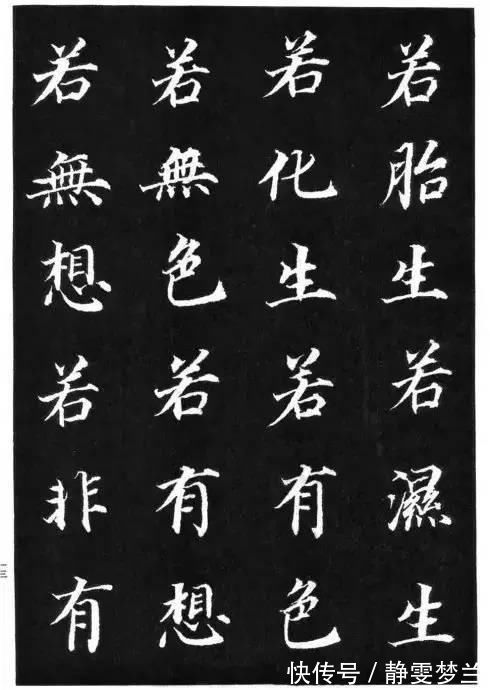 若胎生若濕生
若化生若有色
若無色若有想
若無想若非有
快传号/静雯梦兰